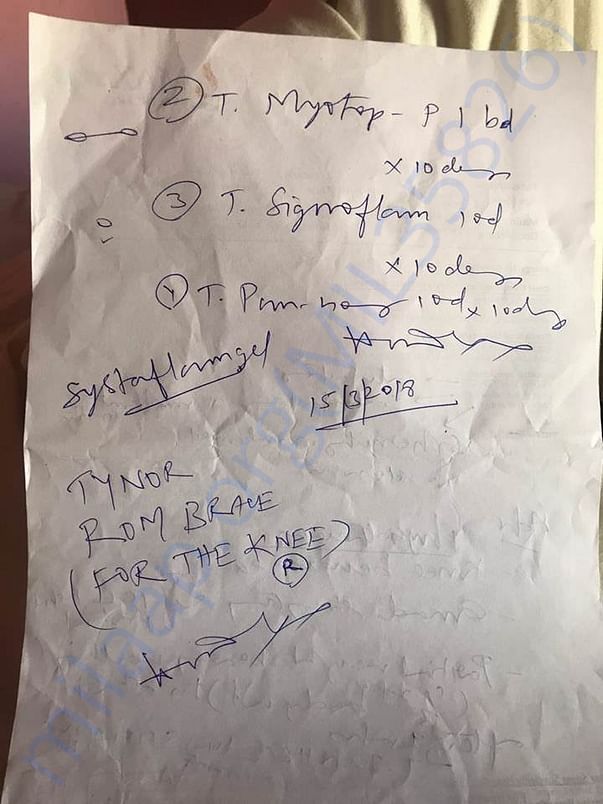 ② T. Myotop-P 1 bd
x 10 days
③ T. Signoflam 1od
x 10 days
T. 1od x 10 days
Systaflam gel
15/3/2018
TYNOR
ROM BRACE
(FOR THE KNEE)
Ⓡ
milaap.org(MIL35826)